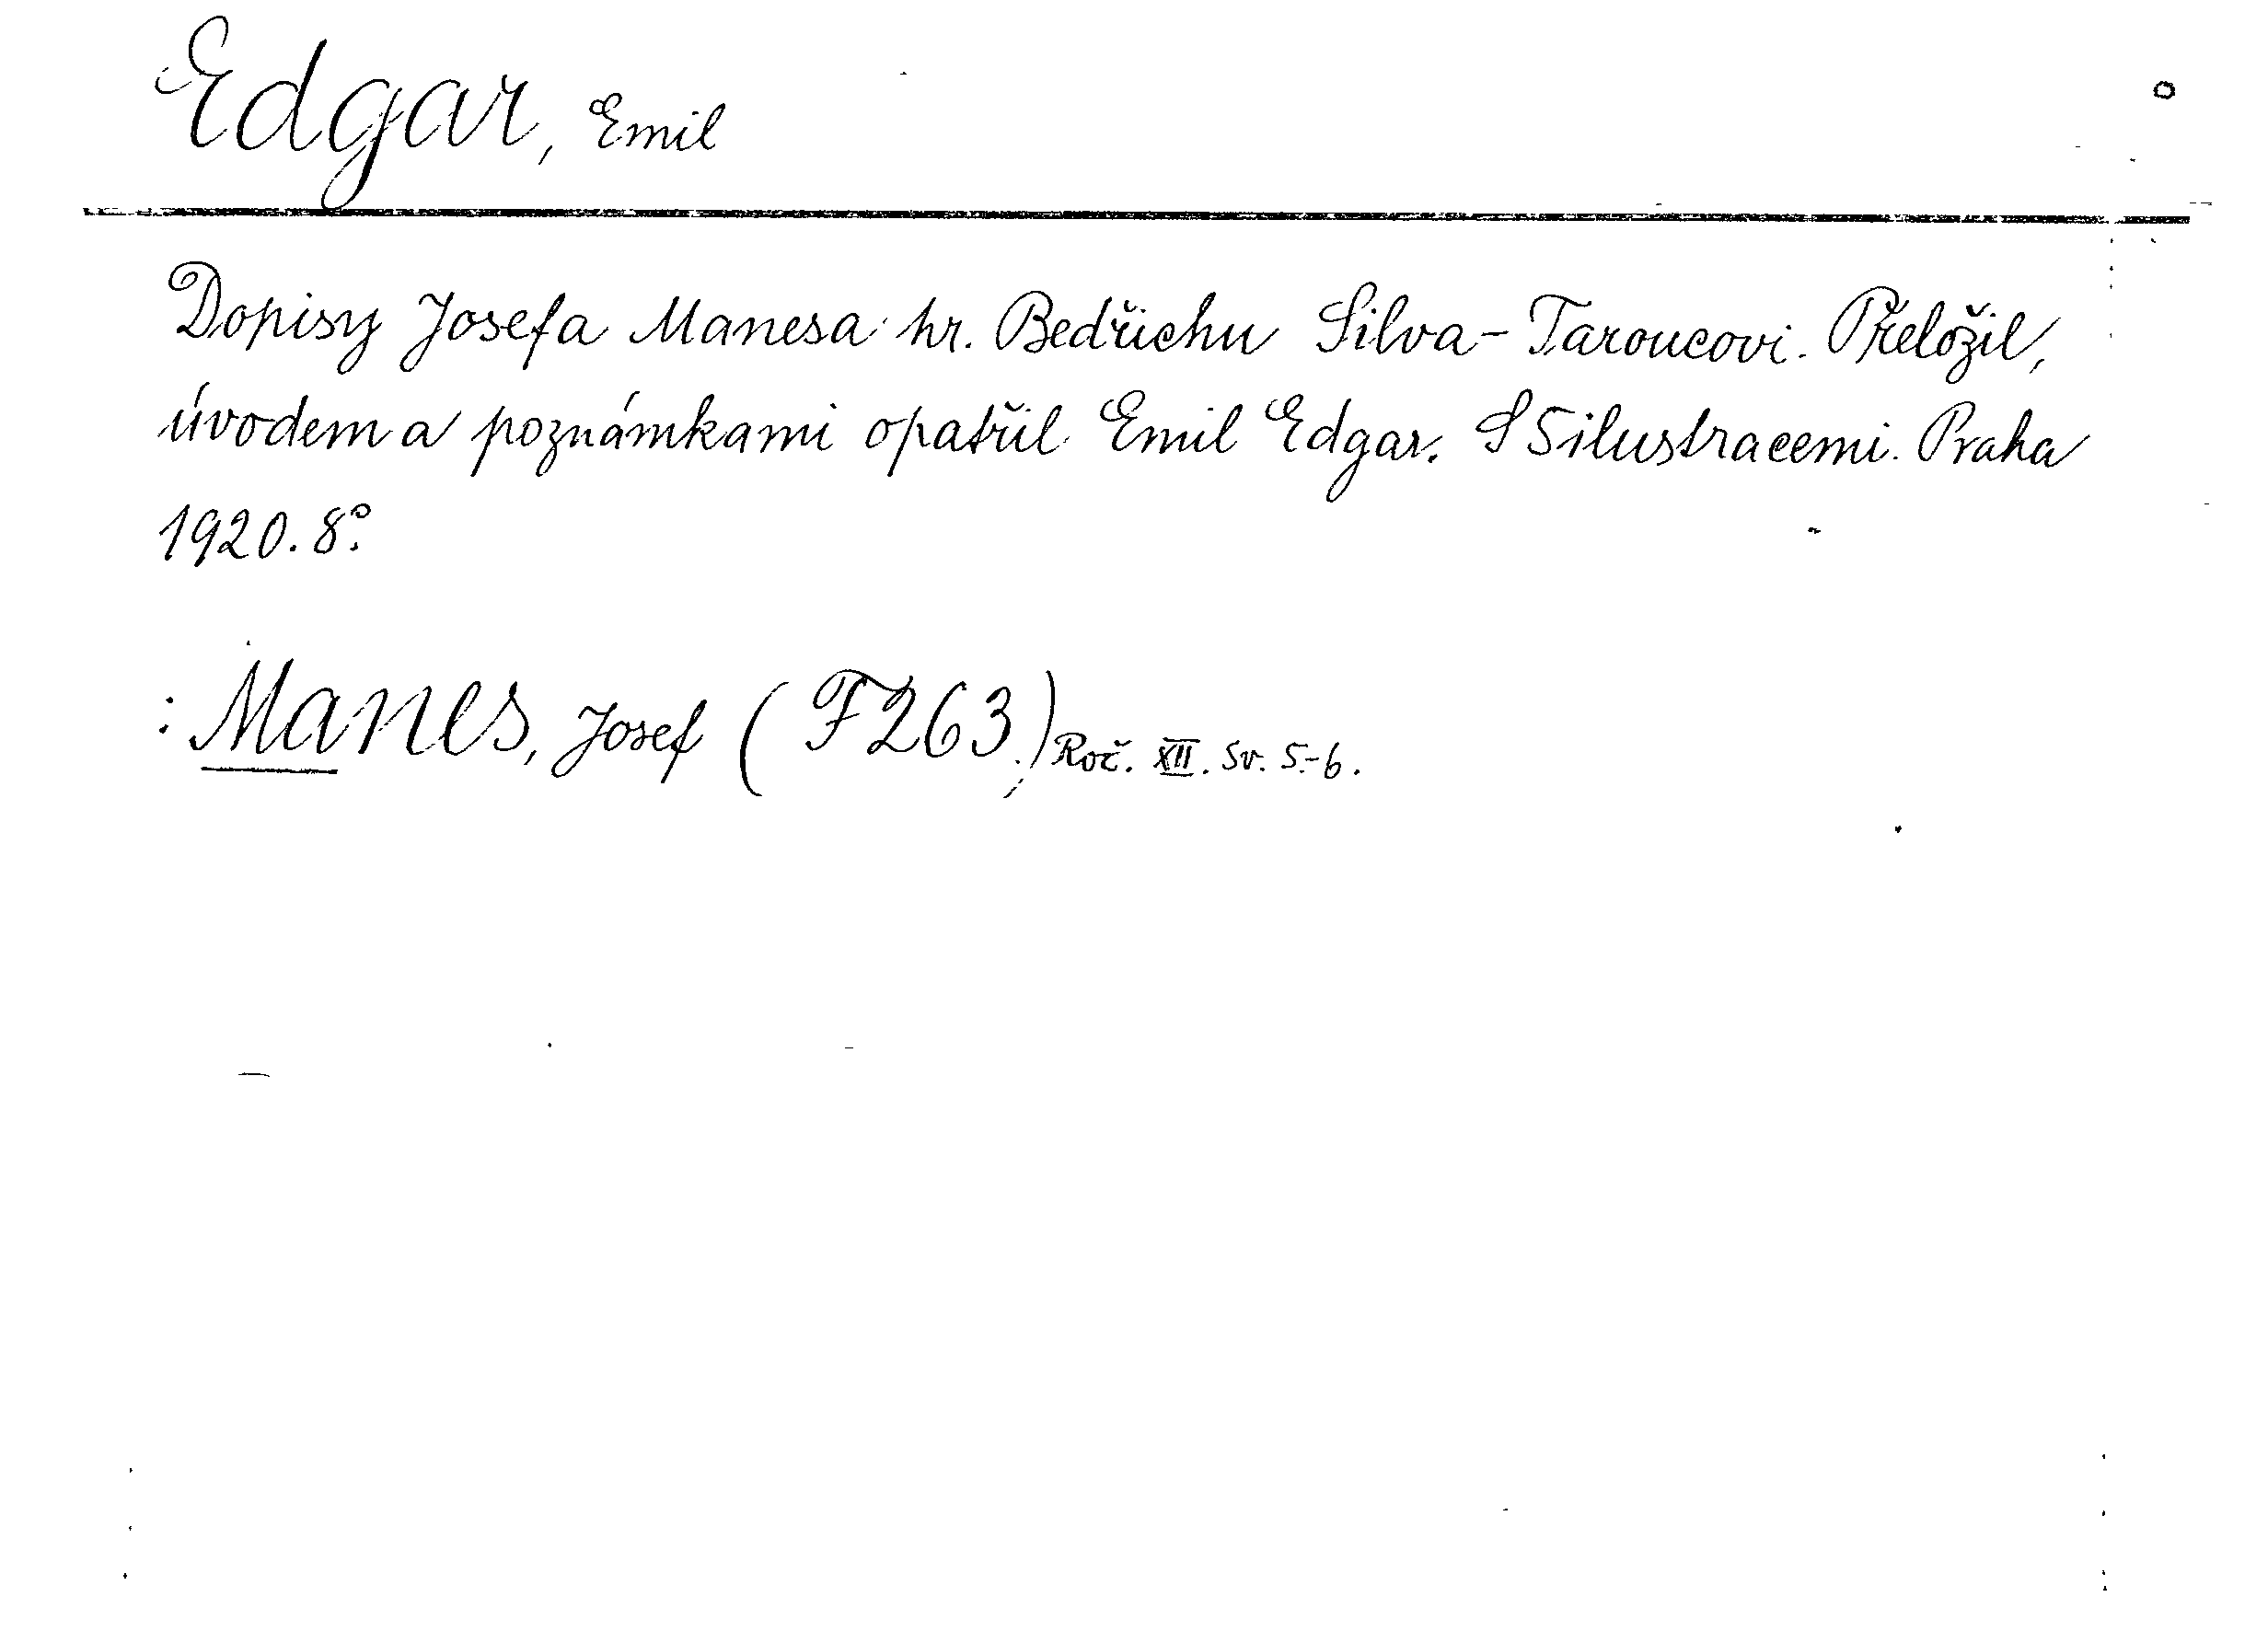 Edgar, Emil
Dopisy Josefa Manesa hr. Bedřichu Silva-Taroucovi. Přeložil,
úvodem a poznámkami opatřil Emil Edgar. S 5 ilustracemi. Praha
1920. 8°.
: Manes, Josef (F263.) Roč. XII. Sv. 5.-6.